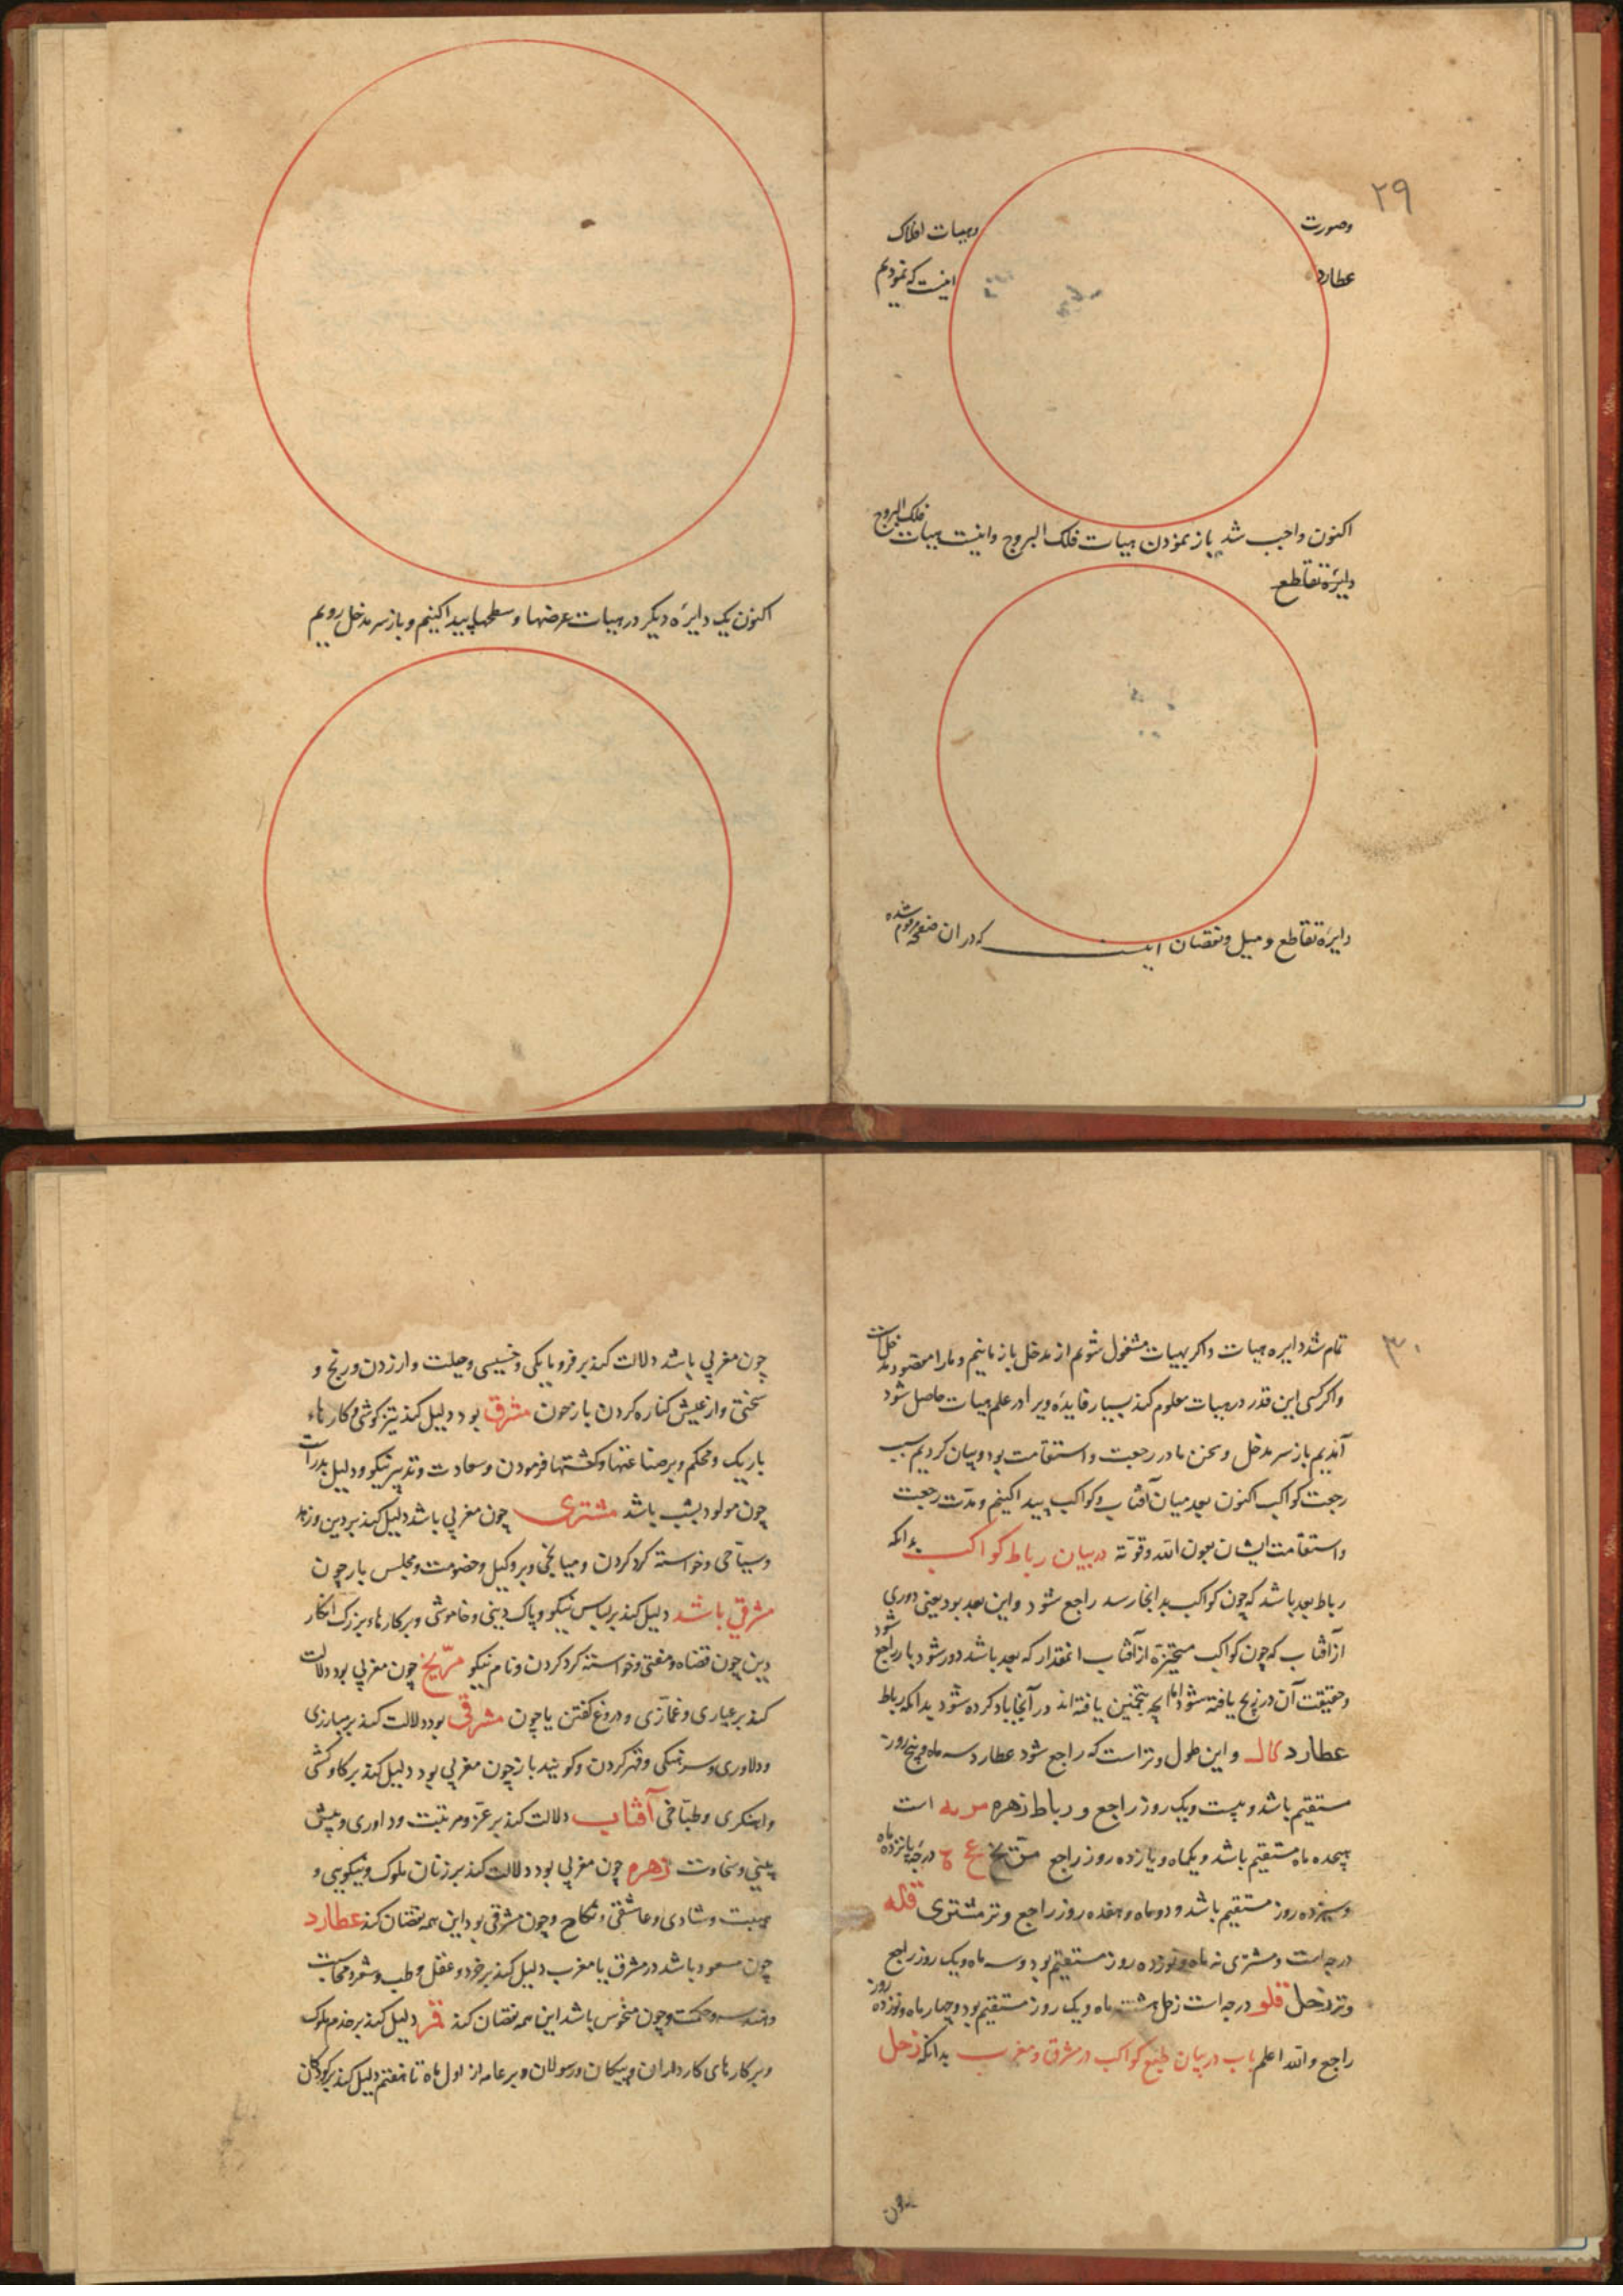 ۲۹
وصورت وهیات افلاک
عطارد اینست که نمودیم
اکنون واجب شد باز نمودن هیات فلک البروج واینست هیات فلک البروج
دایرة تقاطع
دایرة تقاطع و میل ونقصان اینست که در ان صفحه مرقوم شده
اکنون یک دایرَه دیکر در هیات عرضها وسطحها پیدا کنیم و باز سر مدخل رویم
۳۰
تمام شد دایره هیات واکر بهیات مشغول شویم از مدخل باز مانیم ومارا مقصود مدخل است
واکر کسی این قدر در هیات معلوم کند بسیار فایدَه ویرا در علم هیات حاصل شود
آمدیم باز سر مدخل وسخن ما در رجعت واستقامت بود وبیان کردیم سبب
رجعت کواکب اکنون بعد میان آفتاب وکواکب پیدا کنیم ومدّت رجعت
واستقامت ایشان بعون الله وقوّته در بیان رباط کواکب بدانکه
رباط بعد باشد که چون کواکب بدانجا رسد راجع شود واین بعد بود یعنی دوری
از آفتاب که چون کواکب متحیّزه از آفتاب انمقدار که بعد باشد دور شود باز راجع شود
وحقیقت آن در زیج یافته شود اما انچه منجّمین یافته اند در آنجا یاد کرده شود بدانکه رباط
عطارد کالـ واین طول وتر است که راجع شود عطارد سه ماه وپنج روز
مستقیم باشد وبیست ویک روز راجع و رباط زهره مریه است
هیجده ماه مستقیم باشد ویکماه ویازده روز راجع مرّیخ درجَه پانزده ماه
وسیزده روز مستقیم باشد ودوماه وهفده روز راجع وتر مشتری قله
درجه است ومشتری نه ماه ونوزده روز مستقیم بود وسه ماه ویک روز راجع
وتر زحل قلو درجه است زحل هشت ماه ویک روز مستقیم بود وچهار ماه ونوزده روز
راجع والله اعلم باب در بیان طبع کواکب در مشرق ومغرب بدانکه زحل
چون
چون مغربی باشد دلالت کند بر فرومایکی وخسیسی وحیلت وارزدن ورنج و
سختی واز عیش کناره کردن باز چون مشرقی بود دلیل کند تیزکوشی وکارهاء
باریک ومحکم وبر صناعتها وکشتها فرمودن وسعادت وتدبیر نیکو ودلیل پدر است
چون مولود بشب باشد مشتری چون مغربی باشد دلیل کند بر دین وزهد
وسیّاحی وخواسته کرد کردن ومیانجی وبر وکیل وخصومت ومجلس باز چون
مشرقی باشد دلیل کند بر لباس نیکو وپاک دینی وخاموشی وبر کارهاء بزرک انکار
دین چون قضاه ومفتی وخواسته کرد کردن ونام نیکو مرّیخ چون مغربی بود دلالت
کند بر عیاری وغمّازی ودروغ کفتن باز چون مشرقی بود دلالت کند بر مبارزی
ودلاوری وسرهنکی وقهر کردن وکویند باز چون مغربی بود دلیل کند بر کاوکشی
واهنکری وطبّاخی آفتاب دلالت کند بر عزّ ومرتبت وداوری وپیش
بینی وسخاوت زهره چون مغربی بود دلالت کند بر زنان ملوک ونیکویی و
محبت وشادی وعاشقی ونکاح وچون مشرقی بود این همه نقصان کند عطارد
چون مسعود باشد در مشرق یا مغرب دلیل کند بر خرد وعقل وطب وشعر ومحاسبات
وهندسه وحکمت وچون منحوس باشد این همه نقصان کند قمر دلیل کند بر خدم ملوک
وبر کارهای کارداران وپیکان ورسولان وبر عامه از اول ماه تا هفتم دلیل کند بر کودکان